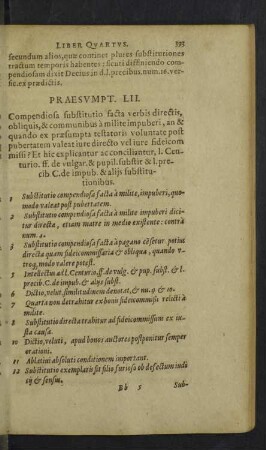 LIBER QVARTVS. 393
secundum alios, quæ continet plures substitutiones
tractum temporis habentes: sicuti differendo com-
pendiosam dixit Decius in d.l. precibus. num. 18. ver-
sic. ex prædictis.
PRAESVMPT. LII.
Compendiosa substitutio facta verbis directis,
obliquis, & communibus à milite impuberi, an &
quando ex præsumpta testatoris voluntate post
pubertatem valeat iure directo vel iure fideicom
missi? Et hic explicantur ac conciliantur, l. Centu-
rio. ff. de vulgar. & pupil. substit & l. pre-
cib. C. de impub. & alijs substitu-
tionibus.
1 Substitutio compendiosa facta à milite, impuberi, quo-
modo valeat post pubertatem.
2 Substitutio compendiosa facta à milite impuberi dici-
tur directa, etiam matre in medio existente: contrà
num. 4.
3 Substitutio compendiosa facta à pagano cēsetur potius
directa quam fideicommissaria & obliqua, quando v-
troq; modo valere potest.
5 Intellectus ad l. Centurio. ff. de vulg. & pup. subst. & l.
precib. C. de impub. & alijs subst.
6 Dictio, velut, similitudinem denotat, & nu. 9. & 10.
7 Quarta non detrahitur ex bonis fideicommissis relicti à
milite.
8 Substitutio directa trahitur ad fideicommissum ex iu-
sta causa.
10 Dictio, veluti, apud bonos auctores postponitur semper
orationi.
11 Ablatiui absoluti conditionem important.
12 Substitutio exemplaris sit filio furioso ob defectum iudi
cij & sensus.
Bb 5 Sub-